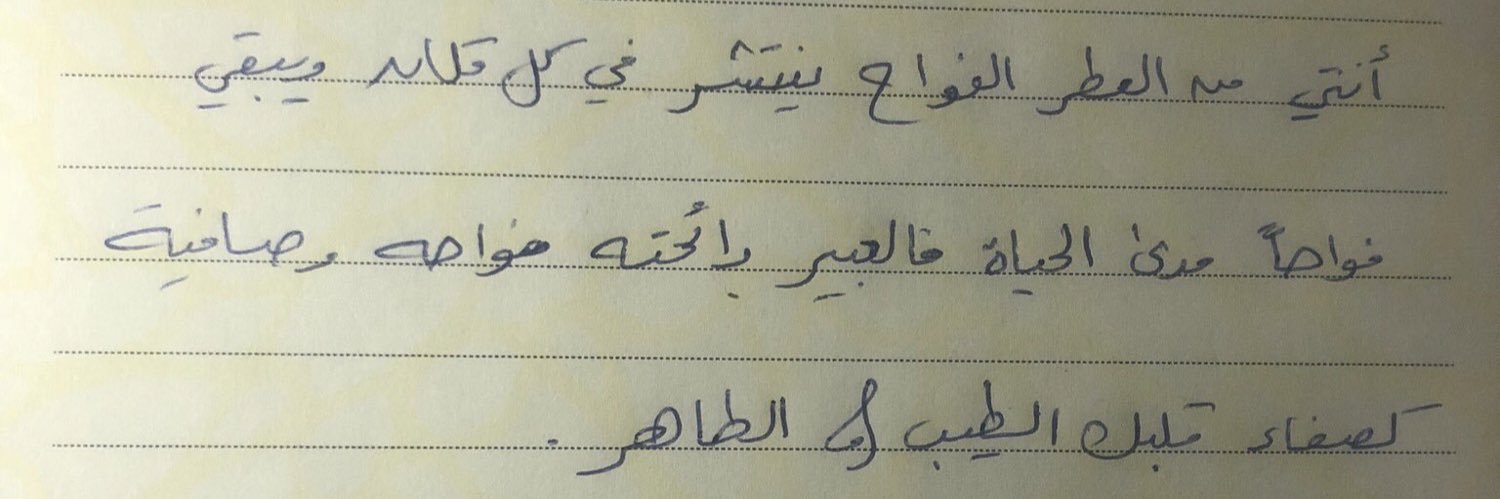 أنتي من العطر الفواح ينتشر في كل مكان ويبقي
فواحاً مدى الحياة فالعبير رائحته فواحه وصافية
كصفاء قلبك الطيب و الطاهر .